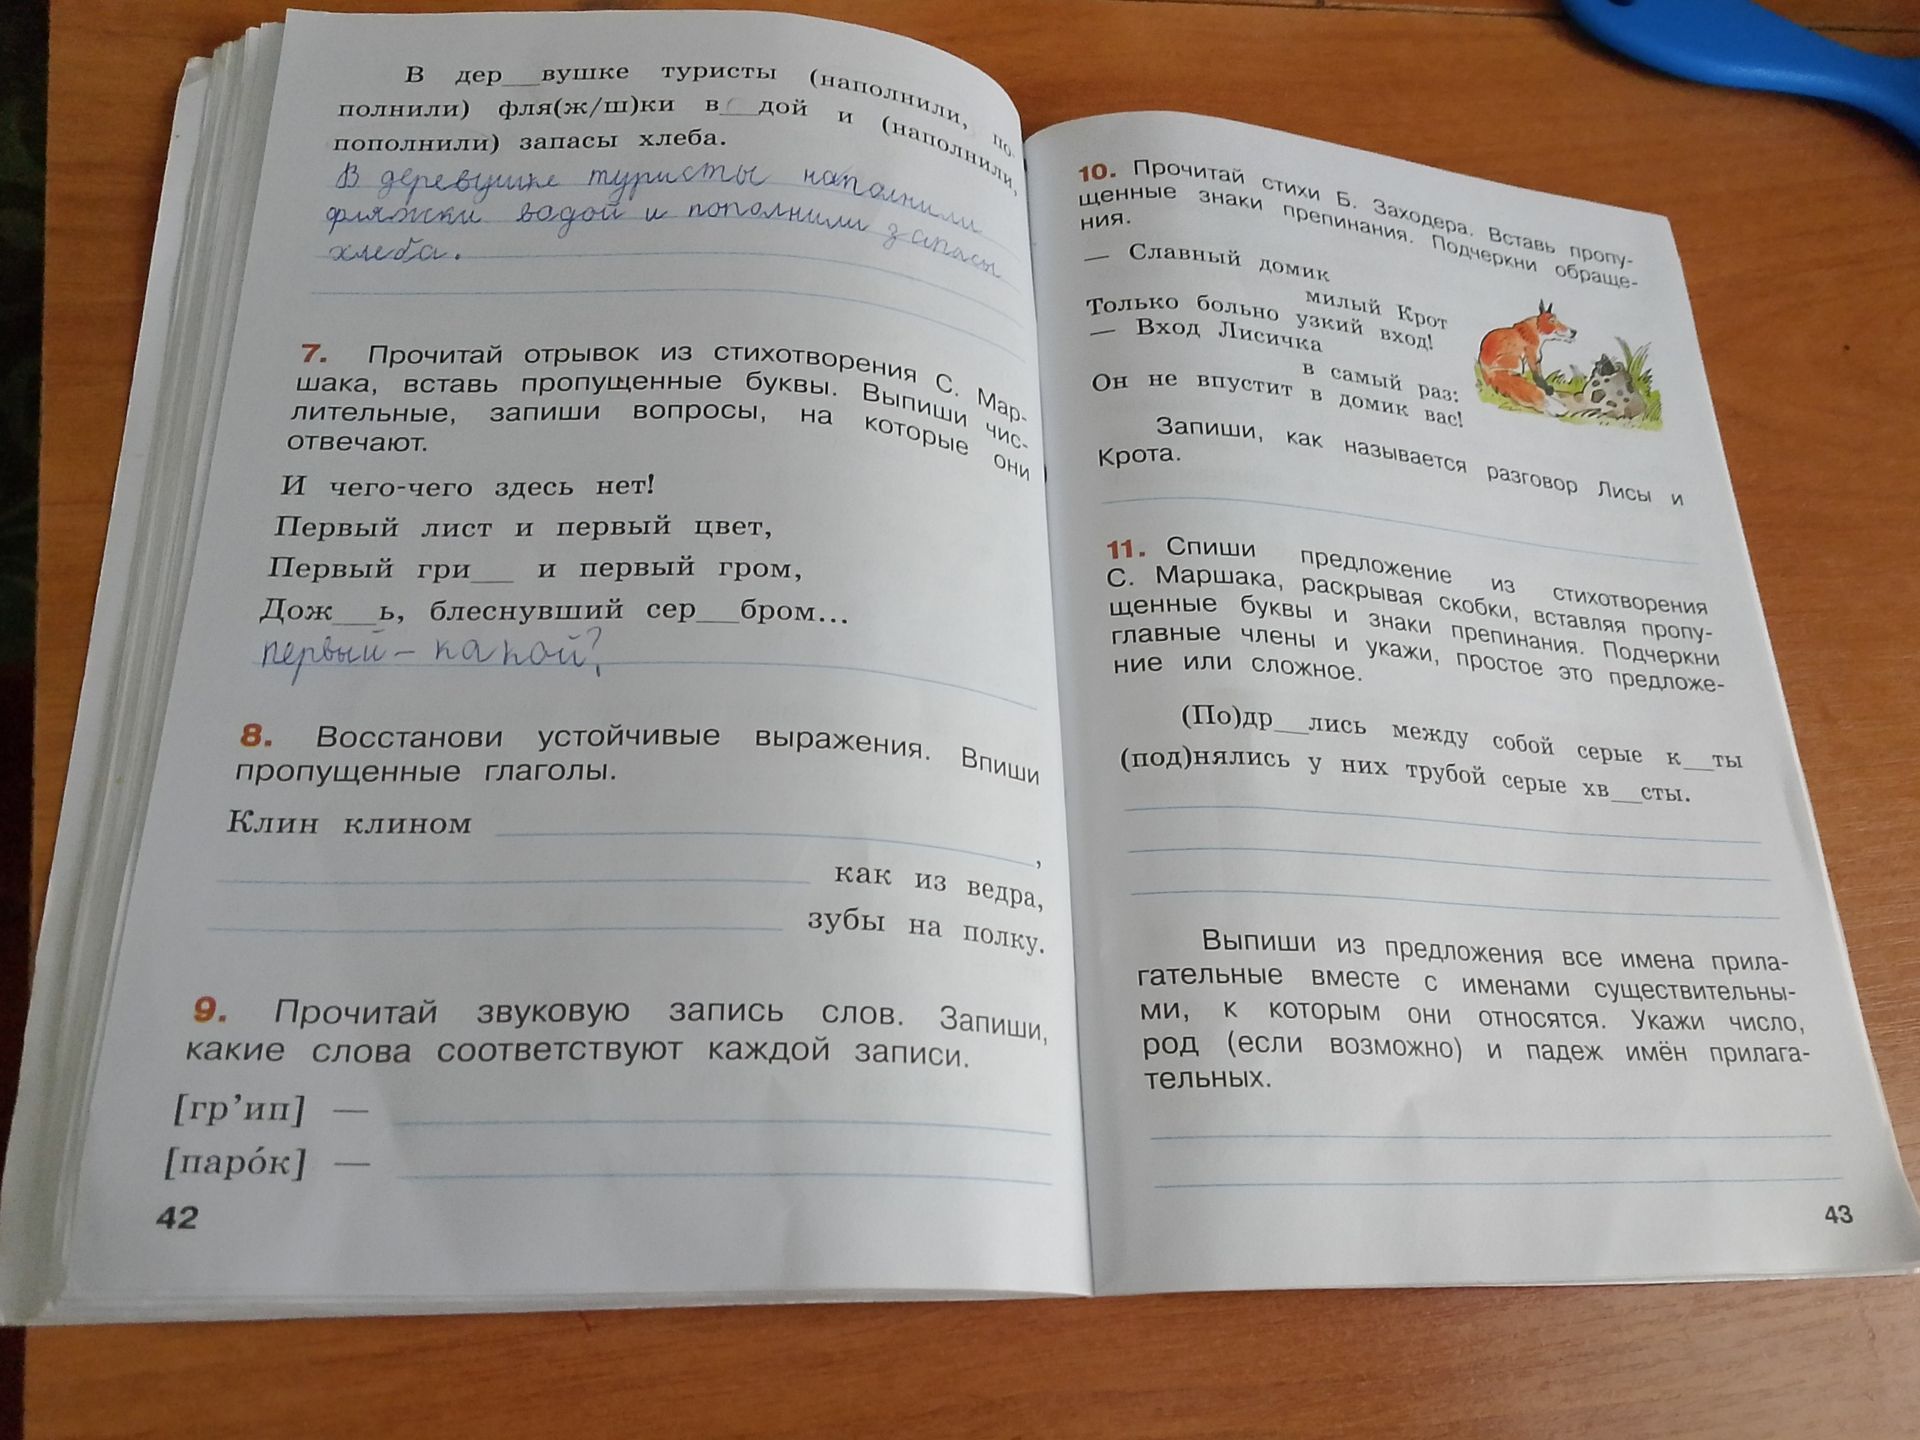 В дер__вушке туристы (наполнили, по-
полнили) фля(ж/ш)ки в__дой и (наполнили,
пополнили) запасы хлеба.
В деревушке туристы наполнили
фляжки водой и пополнили запасы
хлеба.
7. Прочитай отрывок из стихотворения С. Мар-
шака, вставь пропущенные буквы. Выпиши чис-
лительные, запиши вопросы, на которые они
отвечают.
И чего-чего здесь нет!
Первый лист и первый цвет,
Первый гри__ и первый гром,
Дож__ь, блеснувший сер__бром...
первый – какой?
8. Восстанови устойчивые выражения. Впиши
пропущенные глаголы.
Клин клином ____,
____ как из ведра,
____ зубы на полку.
9. Прочитай звуковую запись слов. Запиши,
какие слова соответствуют каждой записи.
[гр’ип] —
[паро́к] —
42
10. Прочитай стихи Б. Заходера. Вставь пропу-
щенные знаки препинания. Подчеркни обраще-
ния.
— Славный домик
милый Крот
Только больно узкий вход!
— Вход Лисичка
в самый раз:
Он не впустит в домик вас!
Запиши, как называется разговор Лисы и
Крота.
11. Спиши предложение из стихотворения
С. Маршака, раскрывая скобки, вставляя пропу-
щенные буквы и знаки препинания. Подчеркни
главные члены и укажи, простое это предложе-
ние или сложное.
(По)др__лись между собой серые к__ты
(под)нялись у них трубой серые хв__сты.
Выпиши из предложения все имена прила-
гательные вместе с именами существительны-
ми, к которым они относятся. Укажи число,
род (если возможно) и падеж имён прилага-
тельных.
43